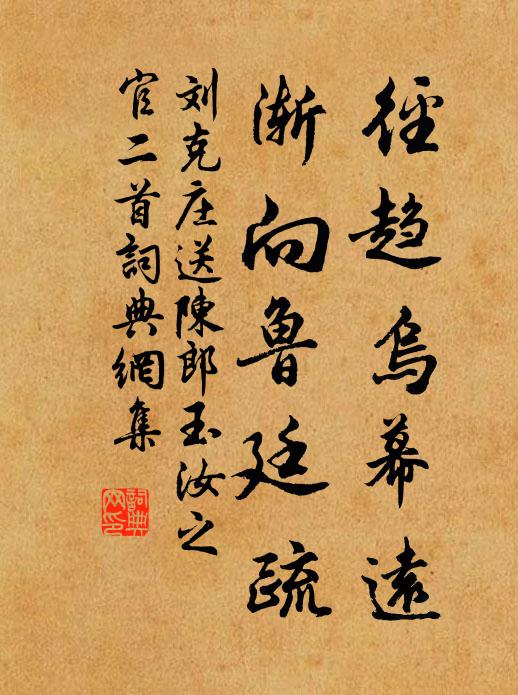 徑趋烏幕遠
渐向鲁廷疏
刘克庄送陳郎玉汝之
官二首詞典網集
詞典
网印